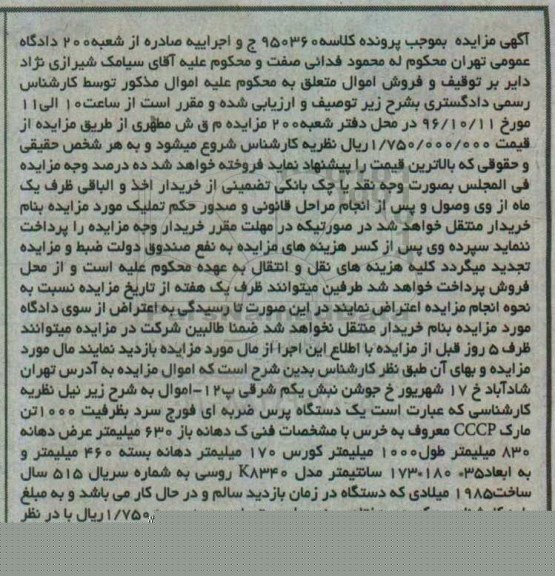 آگهی مزایده بموجب پرونده کلاسه ۹۵۰۳۶۰ ج و اجراییه صادره از شعبه ۲۰۰ دادگاه
عمومی تهران محکوم له محمود فدائی صفت و محکوم علیه آقای سیامک شیرازی نژاد
دایر بر توقیف و فروش اموال متعلق به محکوم علیه اموال مذکور توسط کارشناس
رسمی دادگستری بشرح زیر توصیف و ارزیابی شده و مقرر است از ساعت ۱۰ الی ۱۱
مورخ ۹۶/۱۰/۱۱ در محل دفتر شعبه ۲۰۰ مزایده م ق ش مطهری از طریق مزایده از
قیمت ۱/۷۵۰/۰۰۰/۰۰۰ ریال نظریه کارشناس شروع میشود و به هر شخص حقیقی
و حقوقی که بالاترین قیمت را پیشنهاد نماید فروخته خواهد شد ده درصد وجه مزایده
فی المجلس بصورت وجه نقد یا چک بانکی تضمینی از خریدار اخذ و الباقی ظرف یک
ماه از وی وصول و پس از انجام مراحل قانونی و صدور حکم تملیک مورد مزایده بنام
خریدار منتقل خواهد شد در صورتیکه در مهلت مقرر خریدار وجه مزایده را پرداخت
ننماید سپرده وی پس از کسر هزینه های مزایده به نفع صندوق دولت ضبط و مزایده
تجدید میگردد کلیه هزینه های نقل و انتقال به عهده محکوم علیه است و از محل
فروش پرداخت خواهد شد طرفین میتوانند ظرف یک هفته از تاریخ مزایده نسبت به
نحوه انجام مزایده اعتراض نمایند در این صورت تا رسیدگی به اعتراض از سوی دادگاه
مورد مزایده بنام خریدار منتقل نخواهد شد ضمنا طالبین شرکت در مزایده میتوانند
ظرف ۵ روز قبل از مزایده با اطلاع این اجرا از مال مورد مزایده بازدید نمایند مال مورد
مزایده و بهای آن طبق نظر کارشناس بدین شرح است که اموال مزایده به آدرس تهران
شادآباد خ ۱۷ شهریور خ جوشن نبش یکم شرقی پ۱۲-اموال به شرح زیر نیل نظریه
کارشناسی که عبارت است یک دستگاه پرس ضربه ای فورج سرد بظرفیت ۱۰۰۰تن
مارک CCCP معروف به خرس با مشخصات فنی ک دهانه باز ۶۳۰ میلیمتر عرض دهانه
۸۳۰ میلیمتر طول ۱۰۰۰ میلیمتر کورس ۱۷۰ میلیمتر دهانه بسته ۴۶۰ میلیمتر و
به ابعاد ۳۵۰*۱۸۰*۱۷۳ سانتیمتر مدل K۸۳۴۰ روسی به شماره سریال ۵۱۵ سال
ساخت ۱۹۸۵ میلادی که دستگاه در زمان بازدید سالم و در حال کار می باشد و به مبلغ
۱/۷۵۰ ریال با در نظر